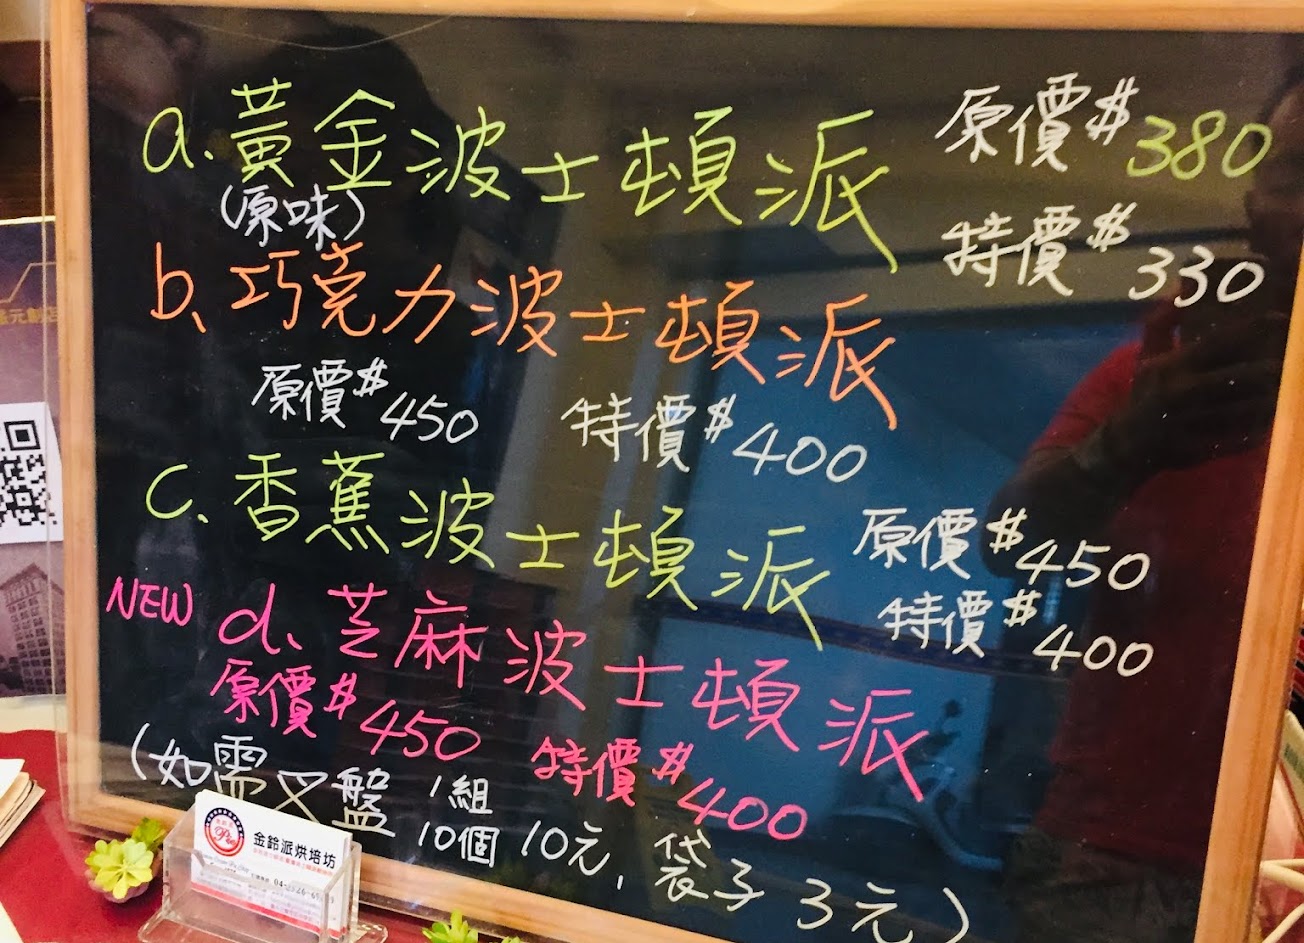 a. 黃金波士頓派 原價$380
(原味) 特價$330
b、巧克力波士頓派
原價$450 特價$400
c、香蕉波士頓派 原價$450
特價$400
NEW d、芝麻波士頓派
原價$450 特價$400
(如需叉盤 1組
10個 10元, 袋子 3元)
金鈴派烘培坊
Pie